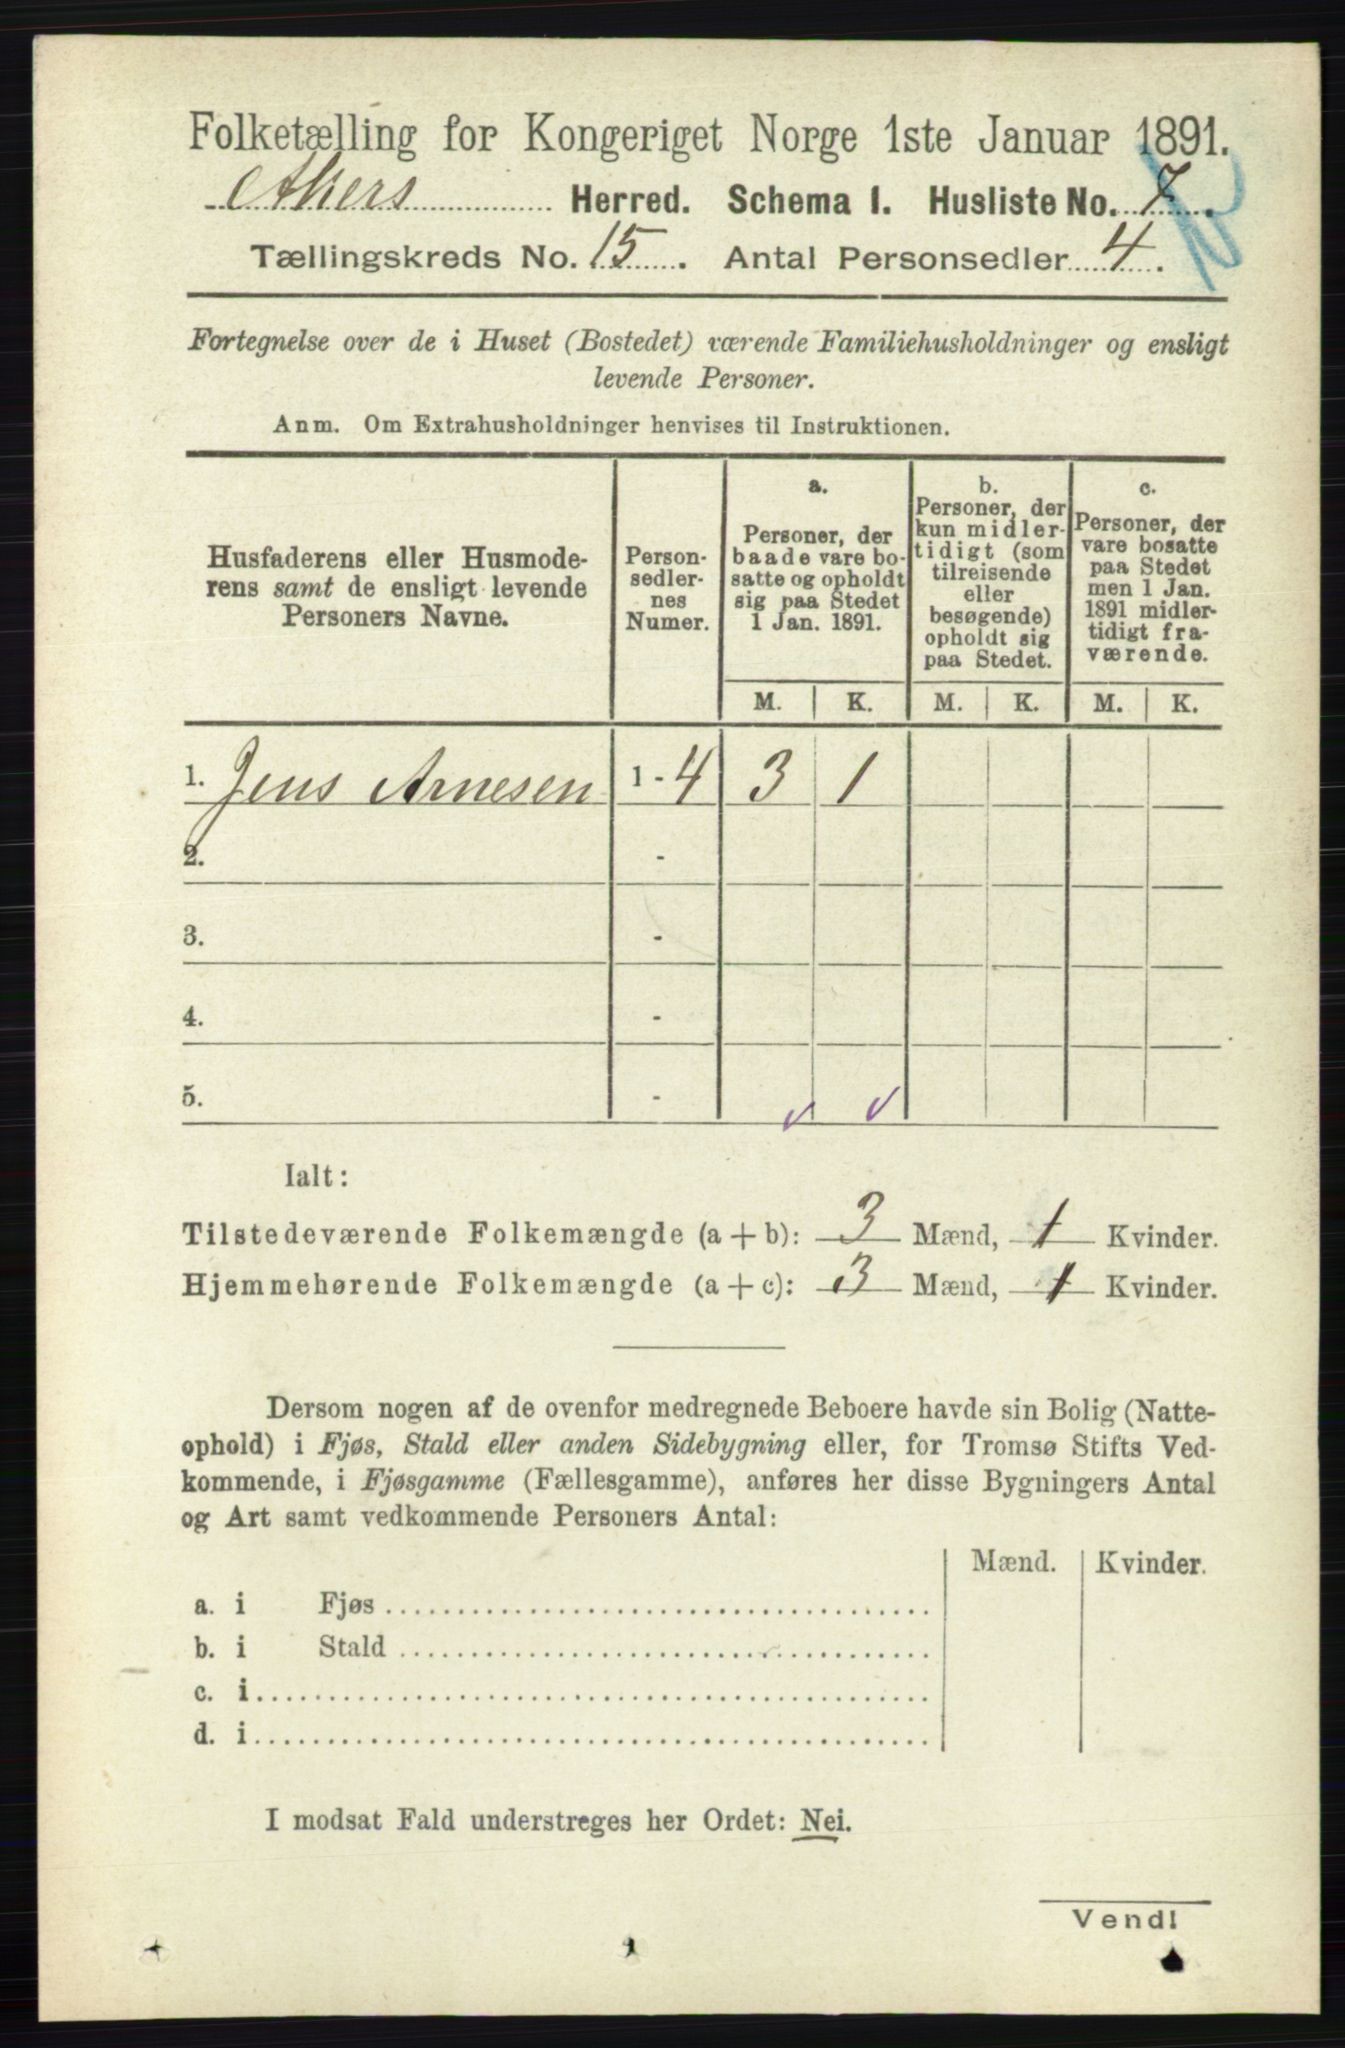 Folketælling for Kongeriget Norge 1ste Januar 1891.
Akers Herred. Schema I. Husliste No. 7.
Tællingskreds No. 15. Antal Personsedler 4.
Fortegnelse over de i Huset (Bostedet) værende Familiehusholdninger og ensligt
levende Personer.
Anm. Om Extrahusholdninger henvises til Instruktionen.
Husfaderens eller Husmode-
rens samt de ensligt levende
Personers Navne.
Person-
sedler-
nes
Numer.
a.
Personer, der
baade vare bo-
satte og opholdt
sig paa Stedet
1 Jan. 1891.
b.
Personer, der
kun midler-
tidigt (som
tilreisende
eller
besøgende)
opholdt sig
paa Stedet.
c.
Personer, der
vare bosatte
paa Stedet
men 1 Jan.
1891 midler-
tidigt fra-
værende.
M. K. M. K. M. K.
1. Jens Arnesen 1 - 4 3 1
2. -
3. -
4. -
5. -
Ialt:
Tilstedeværende Folkemængde (a + b): 3 Mænd, 1 Kvinder.
Hjemmehørende Folkemængde (a + c): 3 Mænd, 1 Kvinder.
Dersom nogen af de ovenfor medregnede Beboere havde sin Bolig (Natte-
ophold) i Fjøs, Stald eller anden Sidebygning eller, for Tromsø Stifts Ved-
kommende, i Fjøsgamme (Fællesgamme), anføres her disse Bygningers Antal
og Art samt vedkommende Personers Antal:
Mænd. Kvinder.
a. i Fjøs
b. i Stald
c. i
d. i
I modsat Fald understreges her Ordet: Nei.
Vend!